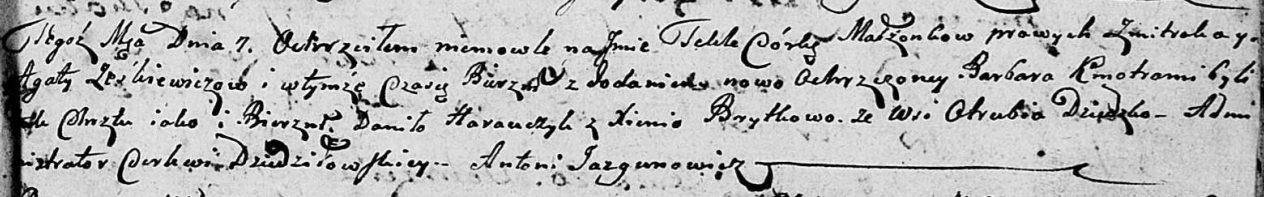 Tegoż Mja Dnia 7. Ochrzciłem niemowle na Jmie Tekle Córkę Małżonkow prawych Zmitroka y
Agaty Leśkiewiczow i wtymże Czasie Bierzm z Dodaniem nowo Ochrzczoney Barbara Kmotrami byli
tak Chrztu iako i Bierzm. Daniło Harauczyk z Xienio Brytkowo. ze Wsi Otrubia Dziedzko - Admi
nistrator Cerkwi Dziedziłowskiey -- Antoni Jazgunowicz